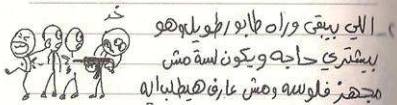 خد
اللي يبقى وراه طابور طويل وهو
بيشتري حاجه ويكون لسة مش
مجهز فلوسه ومش عارف هيطلب ايه